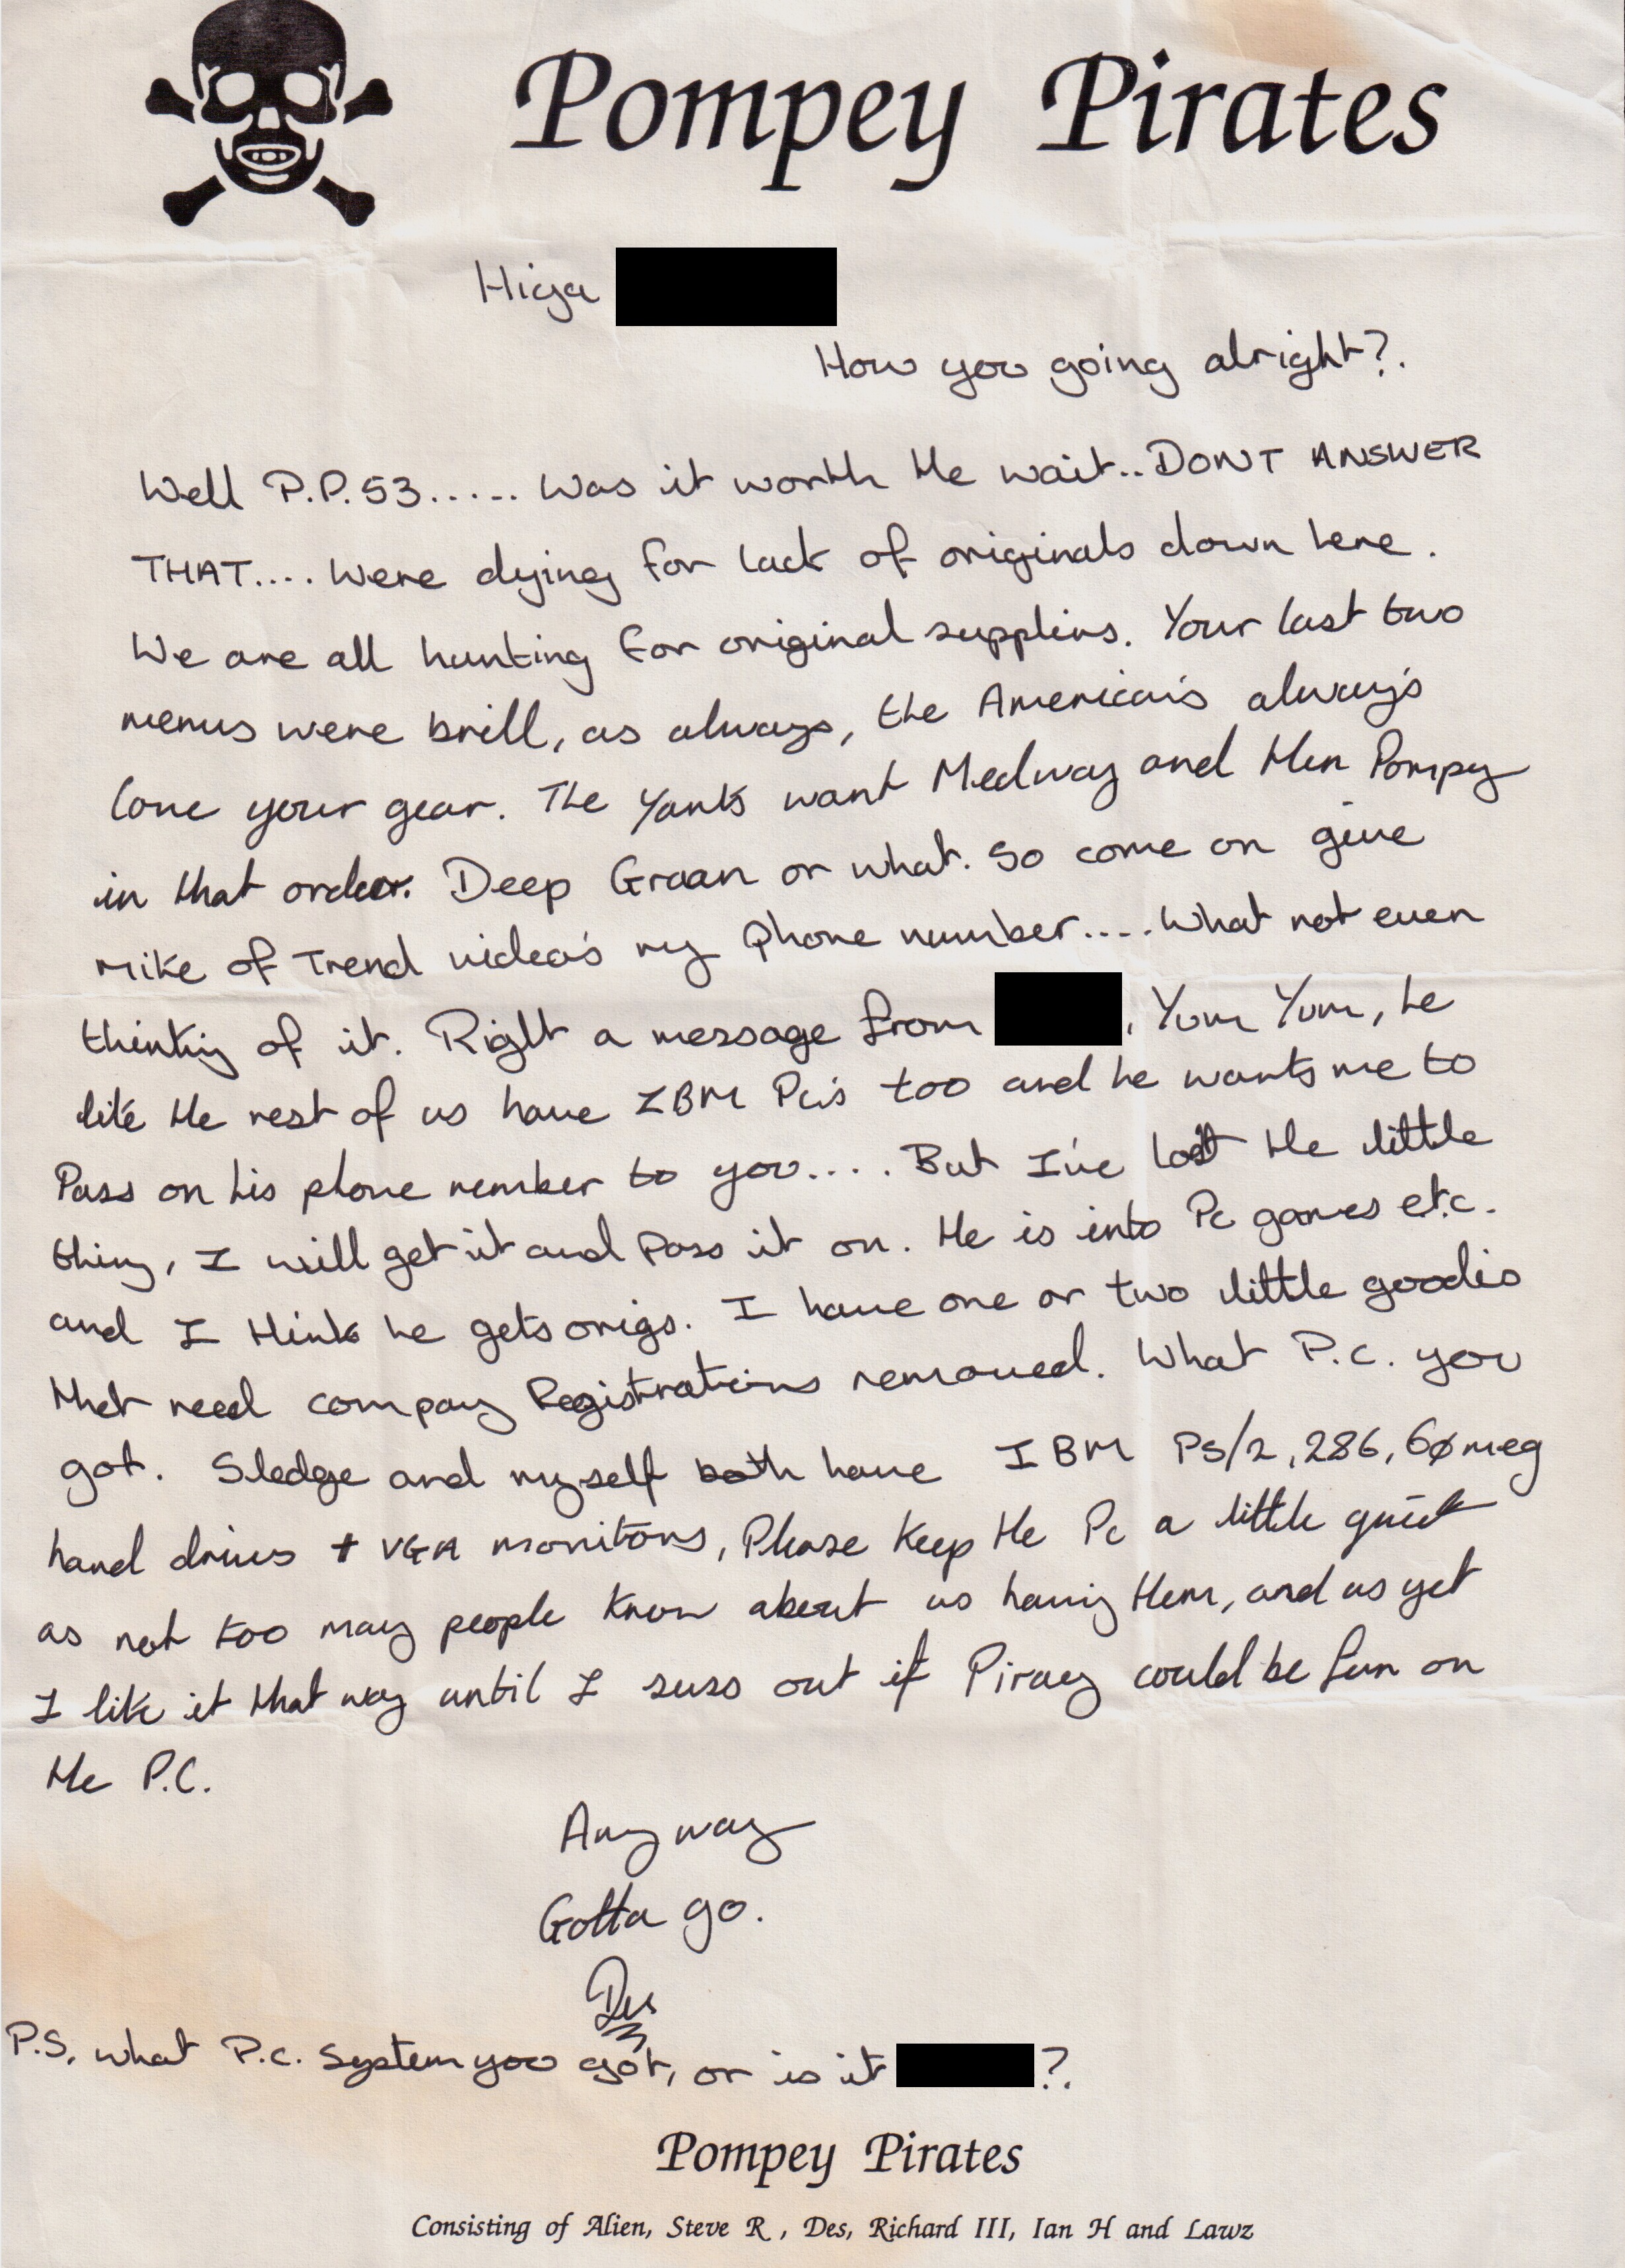 Pompey Pirates
Hiya
How you going alright?.
Well P.P.53..... Was it worth the wait..DONT ANSWER
THAT.... Were dying for lack of originals down here.
We are all hunting for original suppliers. Your last two
menus were brill, as always, the American's always
love your gear. The Yanks want Medway and then Pompy
in that order. Deep Groan or what. So come on give
Mike of Trend video's my phone number....What not even
thinking of it. Right a message from , Yum Yum, he
like the rest of us have IBM Pc's too and he wants me to
Pass on his phone number to you.... But I've lost the little
thing, I will get it and pass it on. He is into Pc games etc.
and I think he gets origs. I have one or two little goodies
that need company Registrations removed. What P.C. you
got. Sledge and myself both have IBM PS/2, 286, 60 meg
hard drives + VGA monitors, Please keep the Pc a little quiet
as not too many people know about us having them, and as yet
I like it that way until I suss out if Piracy could be fun on
the P.C.
Any way
Gotta go.
Des
P.S. what P.C. system you got, or is it ?.
Pompey Pirates
Consisting of Alien, Steve R , Des, Richard III, Ian H and Lawz